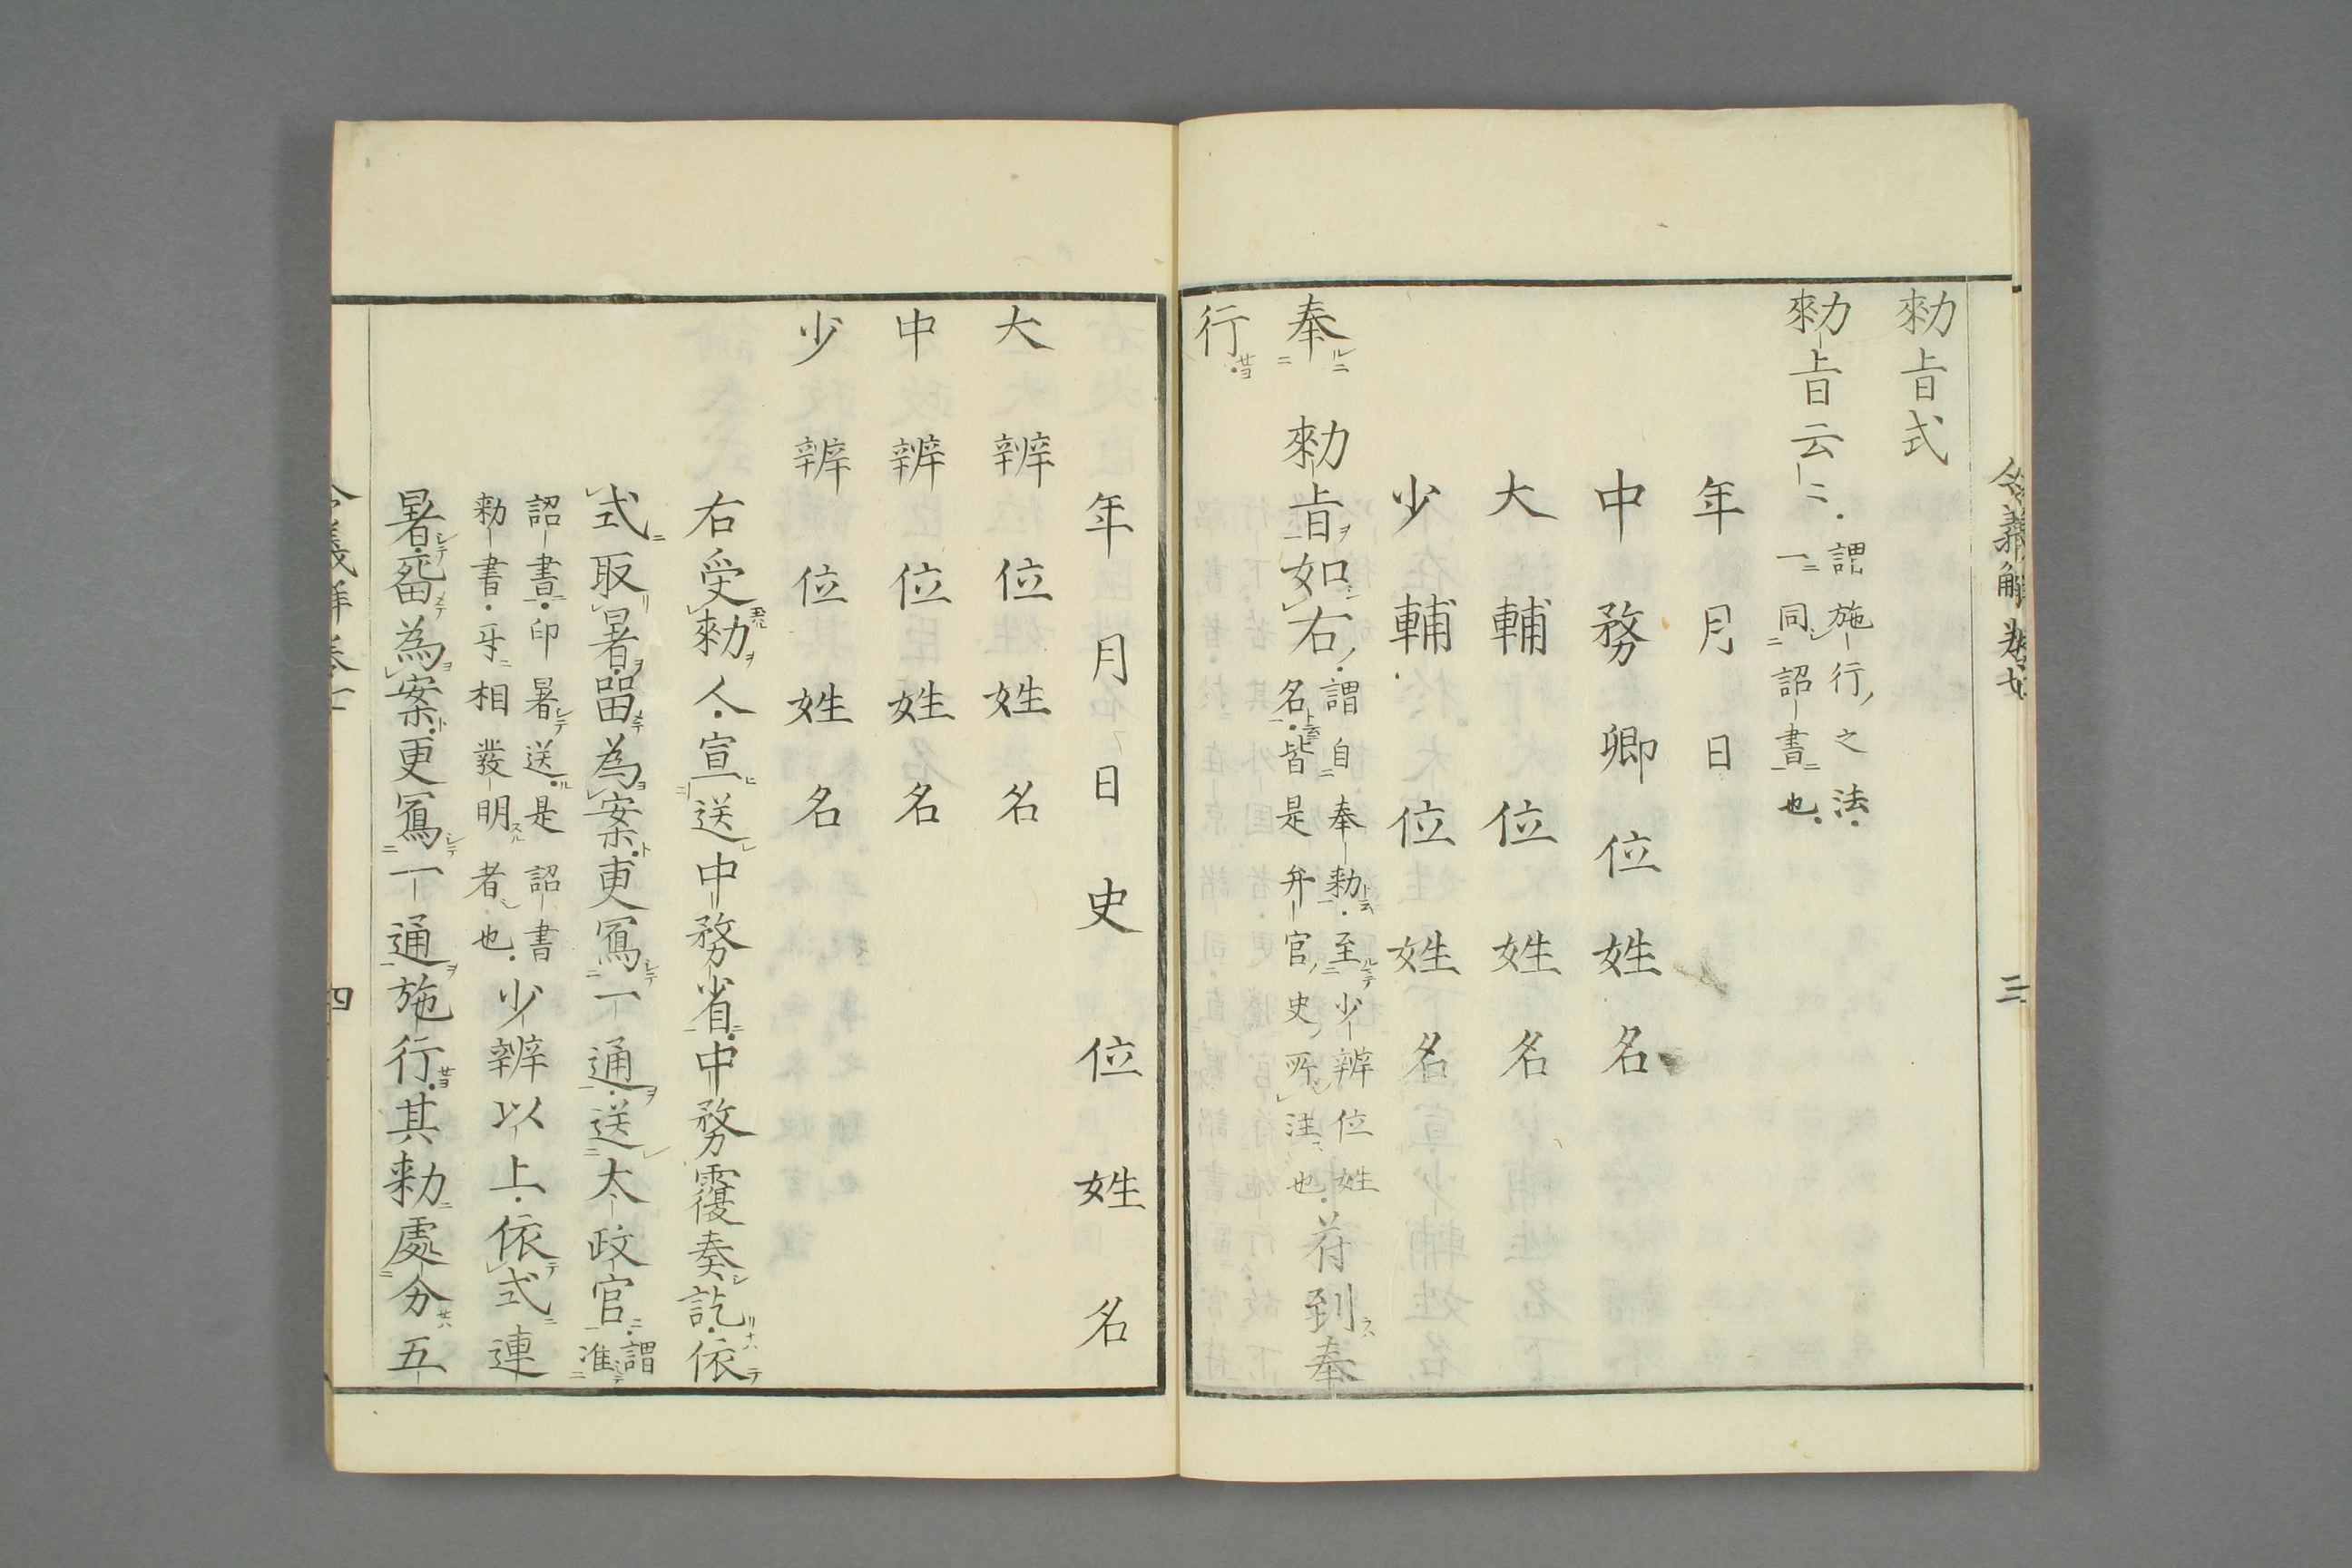 令義解卷七
三
勑旨式
勑旨云二
謂施行之法
一同詔書也
年月日
中務卿位姓名
大輔位姓名
少輔位姓名
奉勑旨如右
謂自奉勑至少辨位姓
名皆是弁官史所注也
符到奉
行
年月日史位姓名
大辨位姓名
中辨位姓名
少辨位姓名
右受勑人宣送中務省中務覆奏訖依
式取署留為案更寫一通送太政官
謂
准
詔書印署送是詔書
勑書牙相發明者也
少辨以上依式連
署畱為案更寫一通施行其勑處分五
四